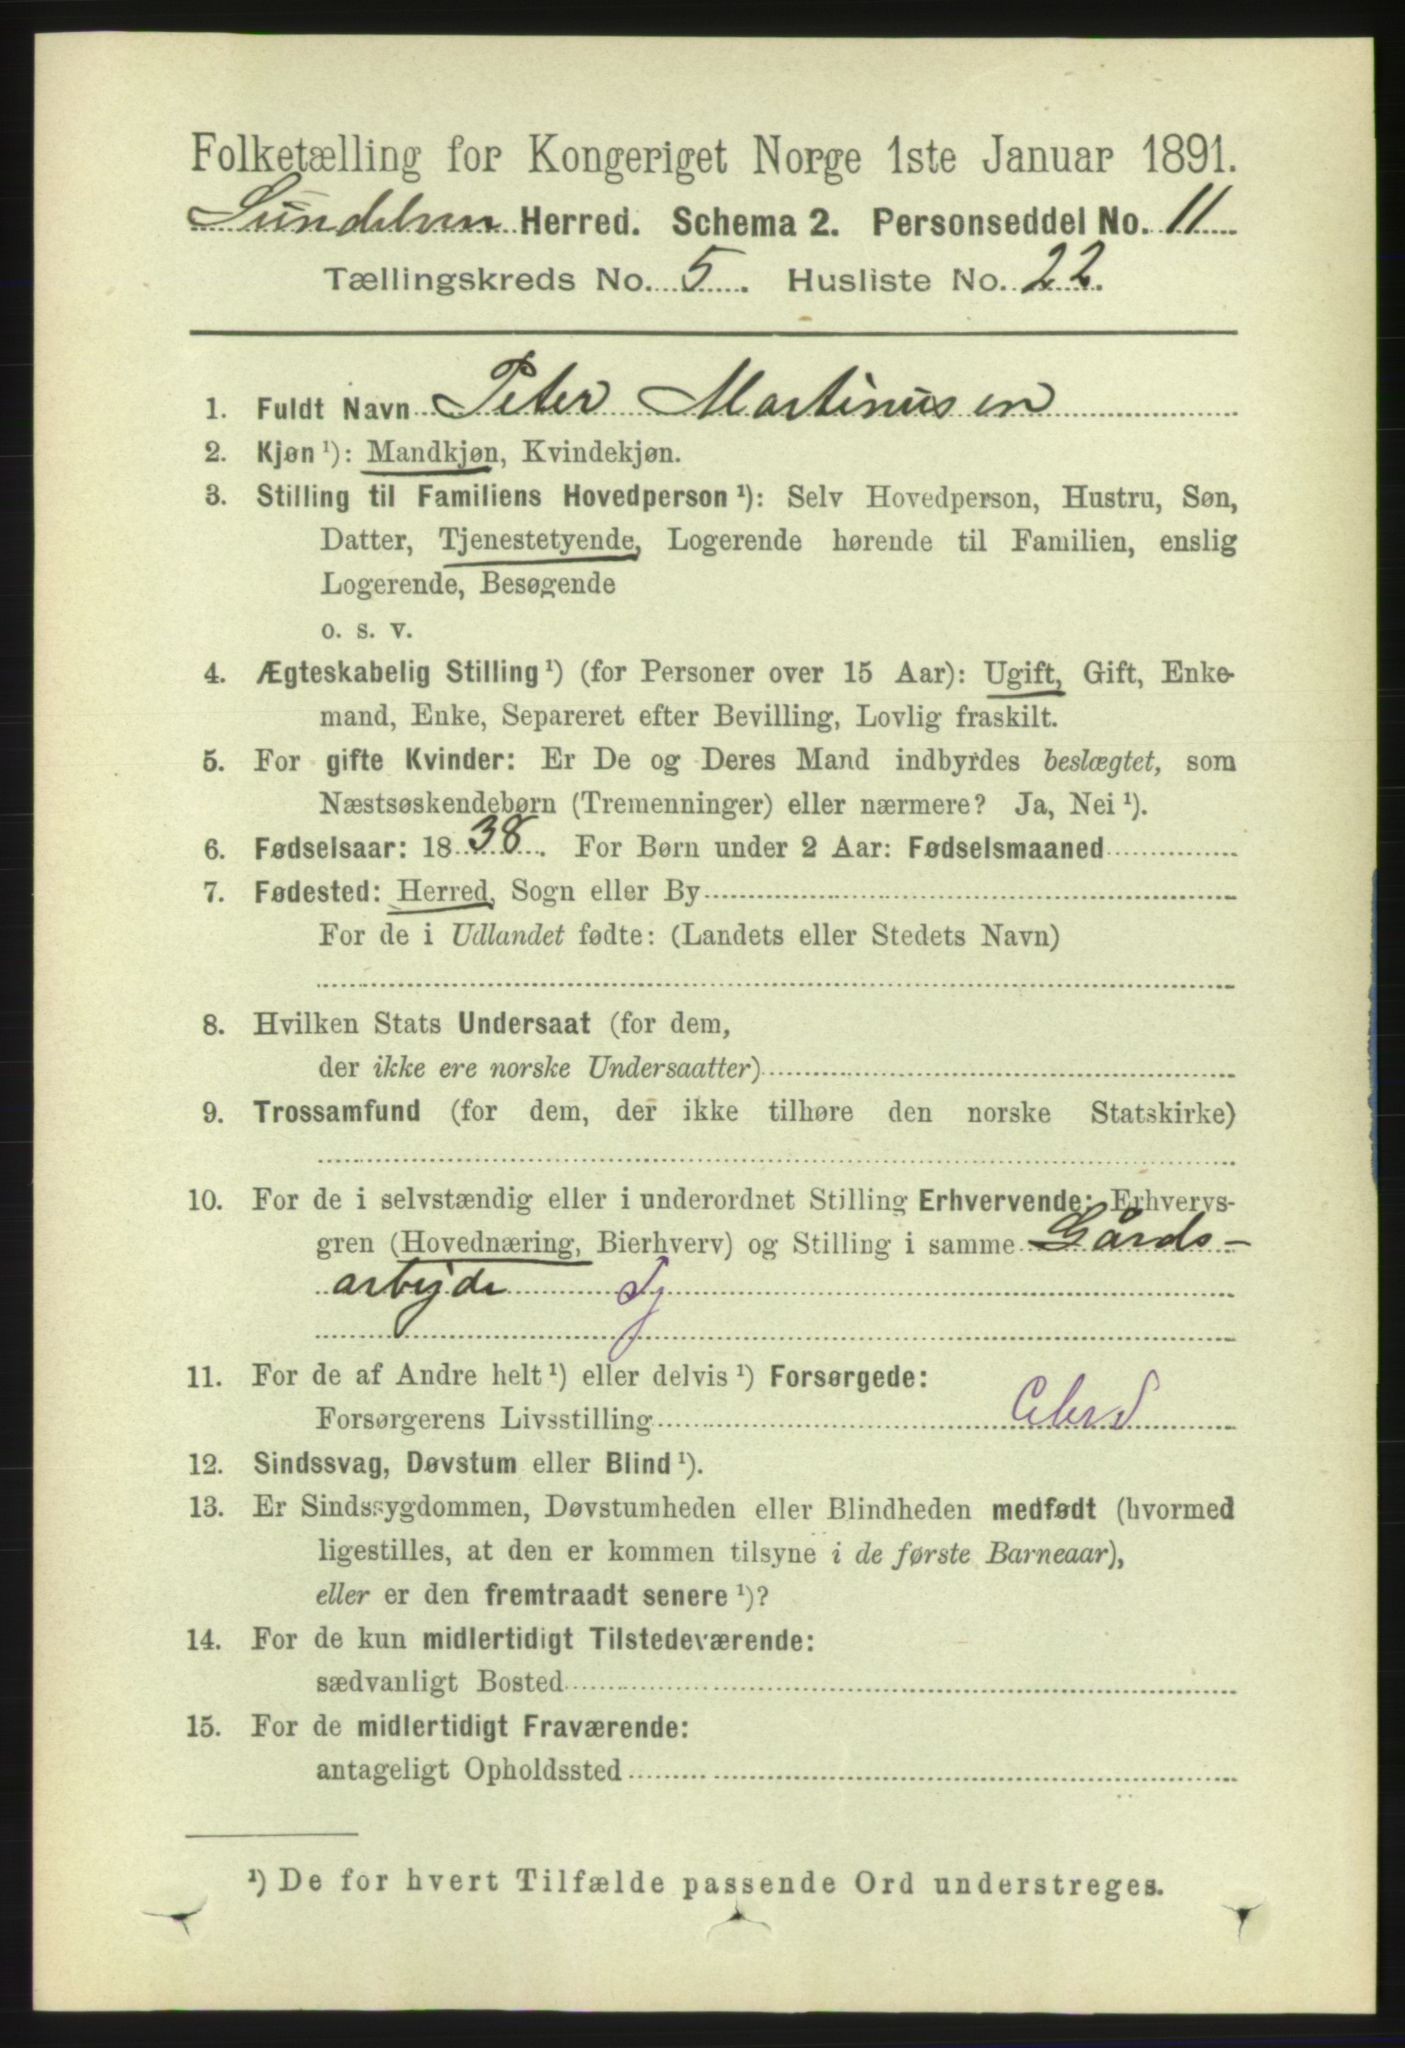 Folketælling for Kongeriget Norge 1ste Januar 1891.
Sundelven Herred. Schema 2. Personseddel No. 11
Tællingskreds No. 5. Husliste No. 22.
1. Fuldt Navn Peter Martinusen
2. Kjøn ¹): Mandkjøn, Kvindekjøn.
3. Stilling til Familiens Hovedperson ¹): Selv Hovedperson, Hustru, Søn,
Datter, Tjenestetyende, Logerende hørende til Familien, enslig
Logerende, Besøgende
o. s. v.
4. Ægteskabelig Stilling ¹) (for Personer over 15 Aar): Ugift, Gift, Enke-
mand, Enke, Separeret efter Bevilling, Lovlig fraskilt.
5. For gifte Kvinder: Er De og Deres Mand indbyrdes beslægtet, som
Næstsøskendebørn (Tremenninger) eller nærmere? Ja, Nei ¹).
6. Fødselsaar: 1838. For Børn under 2 Aar: Fødselsmaaned
7. Fødested: Herred, Sogn eller By
For de i Udlandet fødte: (Landets eller Stedets Navn)
8. Hvilken Stats Undersaat (for dem,
der ikke ere norske Undersaatter)
9. Trossamfund (for dem, der ikke tilhøre den norske Statskirke)
10. For de i selvstændig eller i underordnet Stilling Erhvervende: Erhvervs-
gren (Hovednæring, Bierhverv) og Stilling i samme Gårds-
arbejde Tj
11. For de af Andre helt ¹) eller delvis ¹) Forsørgede:
Forsørgerens Livsstilling
12. Sindssvag, Døvstum eller Blind ¹).
13. Er Sindssygdommen, Døvstumheden eller Blindheden medfødt (hvormed
ligestilles, at den er kommen tilsyne i de første Barneaar),
eller er den fremtraadt senere ¹)?
14. For de kun midlertidigt Tilstedeværende:
sædvanligt Bosted
15. For de midlertidigt Fraværende:
antageligt Opholdssted
¹) De for hvert Tilfælde passende Ord understreges.